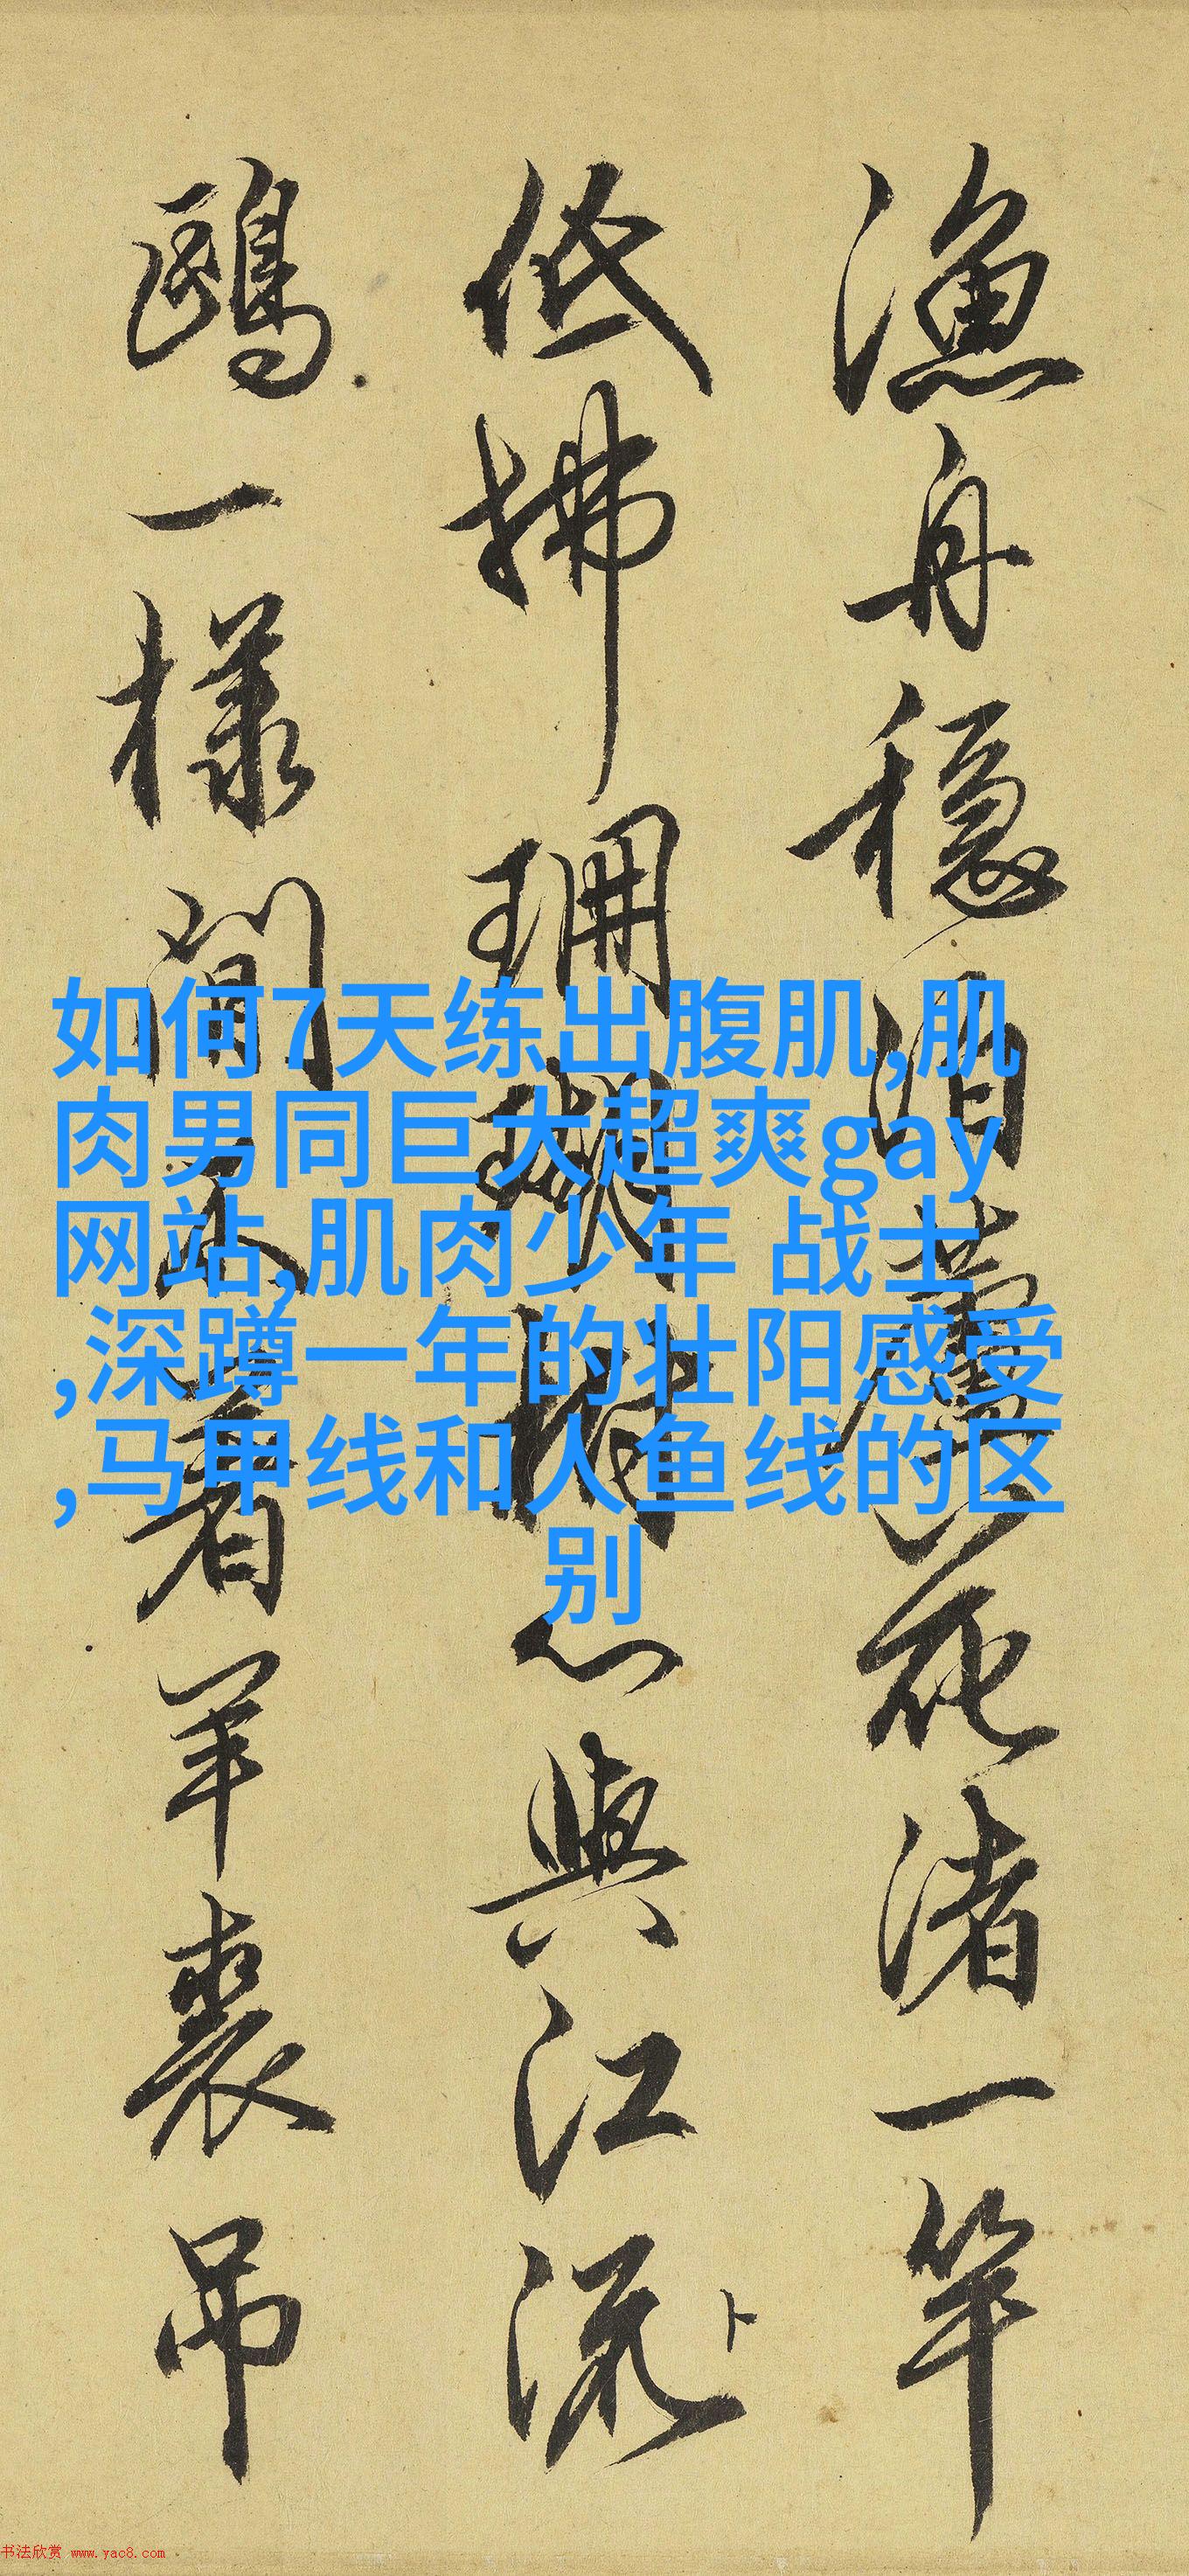 漁舟穩泊蘆花渚一竿
低拂珊瑚樹心與江流
鷗一樣閒不著羊裘吊
如何7天练出腹肌,肌
肉男同巨大超爽gay
网站,肌肉少年 战士
,深蹲一年的壮阳感受
,马甲线和人鱼线的区
别
书法欣赏 www.yac8.com